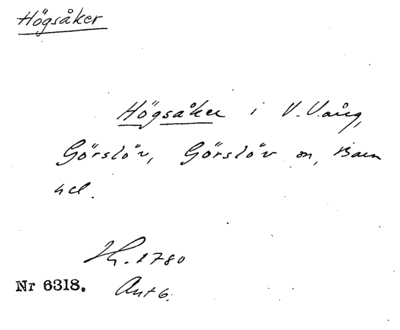 Högsåker
Högsåker i V.Vång,
Görslöv, Görslöv sn, Bara
hd.
Lh. 1780
Nr 6318. Ant 6.